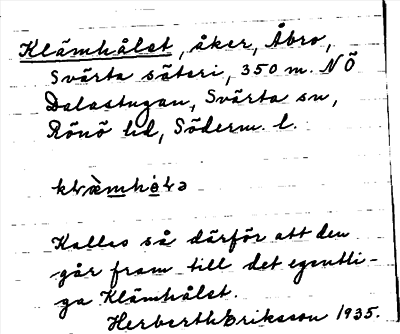 Klämhålet, åker, Åbro,
Svärta säteri, 350 m. NÖ
Dalastugan, Svärta sn,
Rönö hd, Söderm. l.
Kallas så därför att den
går fram till det egentli-
ga Klämhålet.
Herbert Eriksson 1935.